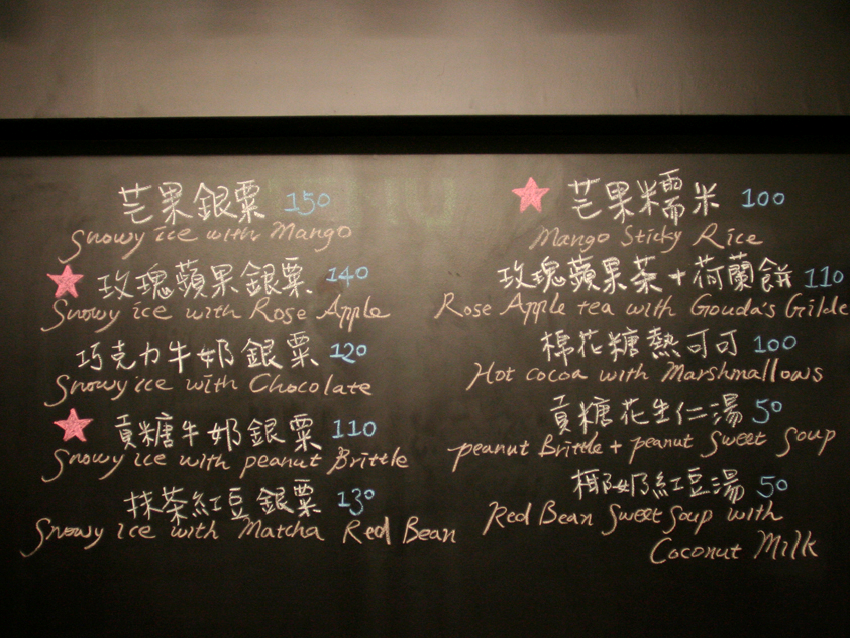 芒果銀粟 150
Snowy ice with Mango
玫瑰蘋果銀粟 140
Snowy ice with Rose Apple
巧克力牛奶銀粟 120
Snowy ice with Chocolate
貢糖牛奶銀粟 110
Snowy ice with peanut Brittle
抹茶紅豆銀粟 130
Snowy ice with Matcha Red Bean
芒果糯米 100
Mango Sticky Rice
玫瑰蘋果茶+荷蘭餅 110
Rose Apple tea with Gouda's Gilde
棉花糖熱可可 100
Hot cocoa with Marshmallows
貢糖花生仁湯 50
peanut Brittle + peanut Sweet Soup
椰奶紅豆湯 50
Red Bean Sweet Soup with
Coconut Milk